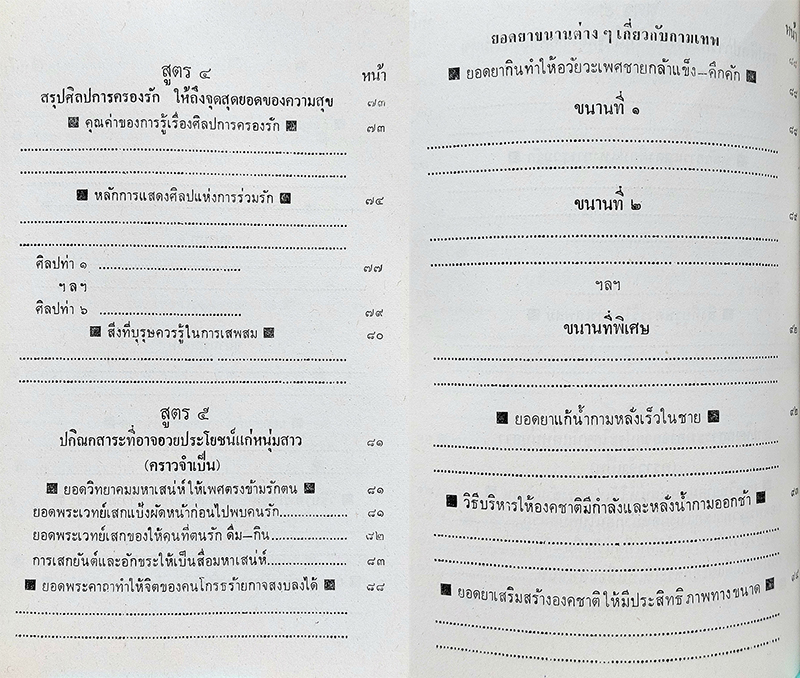 สูตร ๔
หน้า
สรุปศิลปการครองรัก ให้ถึงจุดสุดยอดของความสุข ๗๓
คุณค่าของการรู้เรื่องศิลปการครองรัก ๗๓
หลักการแสดงศิลปแห่งการร่วมรัก ๗๔
ศิลปท่า ๑ ๗๗
ฯลฯ
ศิลปท่า ๖ ๗๙
สิ่งที่บุรุษควรรู้ในการเสพสม ๘๐
สูตร ๕
ปกิณกสาระที่อาจอวยประโยชน์แก่หนุ่มสาว ๘๑
(คราวจำเป็น)
ยอดวิทยาคมมหาเสน่ห์ให้เพศตรงข้ามรักตน ๘๑
ยอดพระเวทย์เสกแป้งผัดหน้าก่อนไปพบคนรัก ๘๑
ยอดพระเวทย์เสกของให้คนที่ตนรัก ดื่ม–กิน ๘๒
การเสกยันต์และอักขระให้เป็นสื่อมหาเสน่ห์ ๘๓
ยอดพระคาถาทำให้จิตของคนโกรธร้ายกาจสงบลงได้ ๘๘
ยอดยาขนานต่าง ๆ เกี่ยวกับกามเทพ
หน้า
ยอดยากินทำให้อวัยวะเพศชายกล้าแข็ง–คึกคัก
ขนานที่ ๑
ขนานที่ ๒
ฯลฯ
ขนานที่พิเศษ
ยอดยาแก้น้ำกามหลั่งเร็วในชาย
วิธีบริหารให้องคชาติมีกำลังและหลั่งน้ำกามออกช้า
ยอดยาเสริมสร้างองคชาติให้มีประสิทธิภาพทางขนาด